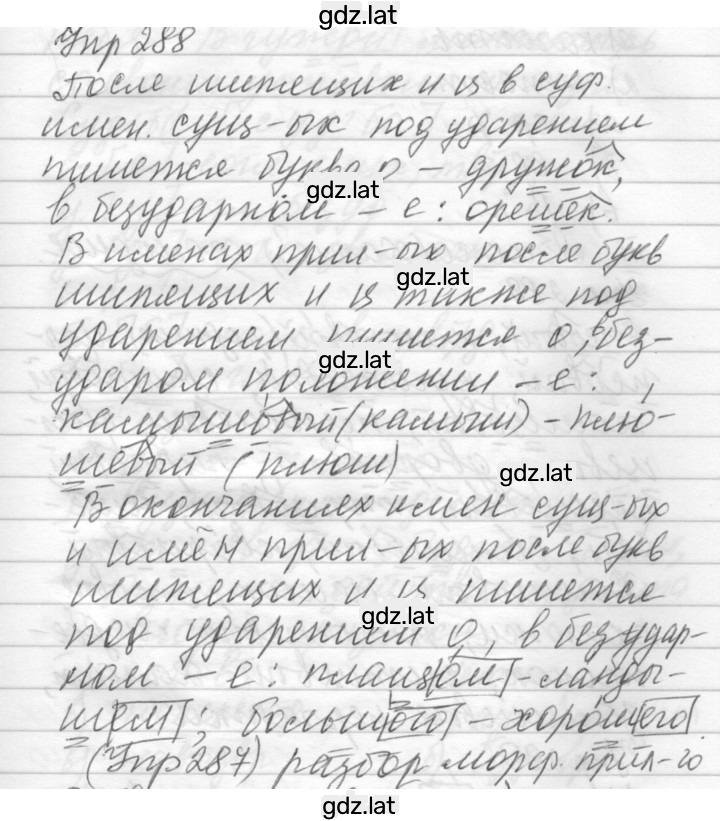 gdz.lat
Упр 288
После шипящих и ц в суф.
имен. сущ-ых под ударением
пишется буква о – дружок,
gdz.lat
в безударном – е: орешек.
В именах прил-ых после букв
gdz.lat
шипящих и ц также под
ударением пишется о, без-
gdz.lat
ударом положении – е:
камышовый (камыш) – плю-
шевый (плюш)
gdz.lat
В окончаниях имен сущ-ых
и имён прил-ых после букв
шипящих и ц пишется
gdz.lat
под ударением о, в безудар-
ном – е: плащом – ланды-
шем; большого – хорошего.
(Упр 287) разбор морф. прил-го
gdz.lat